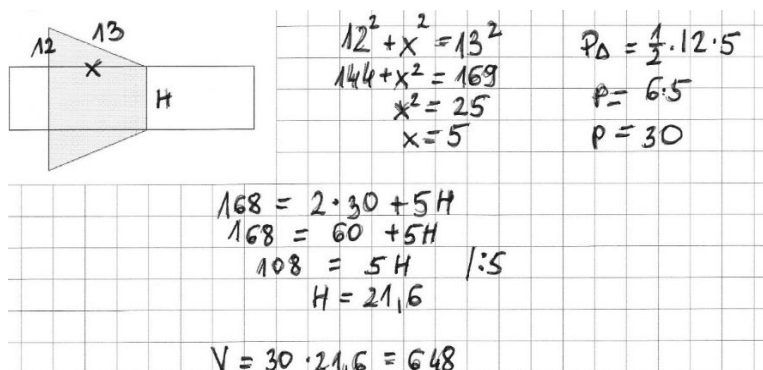 12 13
x
H
12² + x² = 13²
144 + x² = 169
x² = 25
x = 5
P△ = ½ · 12 · 5
P = 6·5
P = 30
168 = 2 · 30 + 5H
168 = 60 + 5H
108 = 5H /:5
H = 21,6
V = 30 · 21,6 = 648